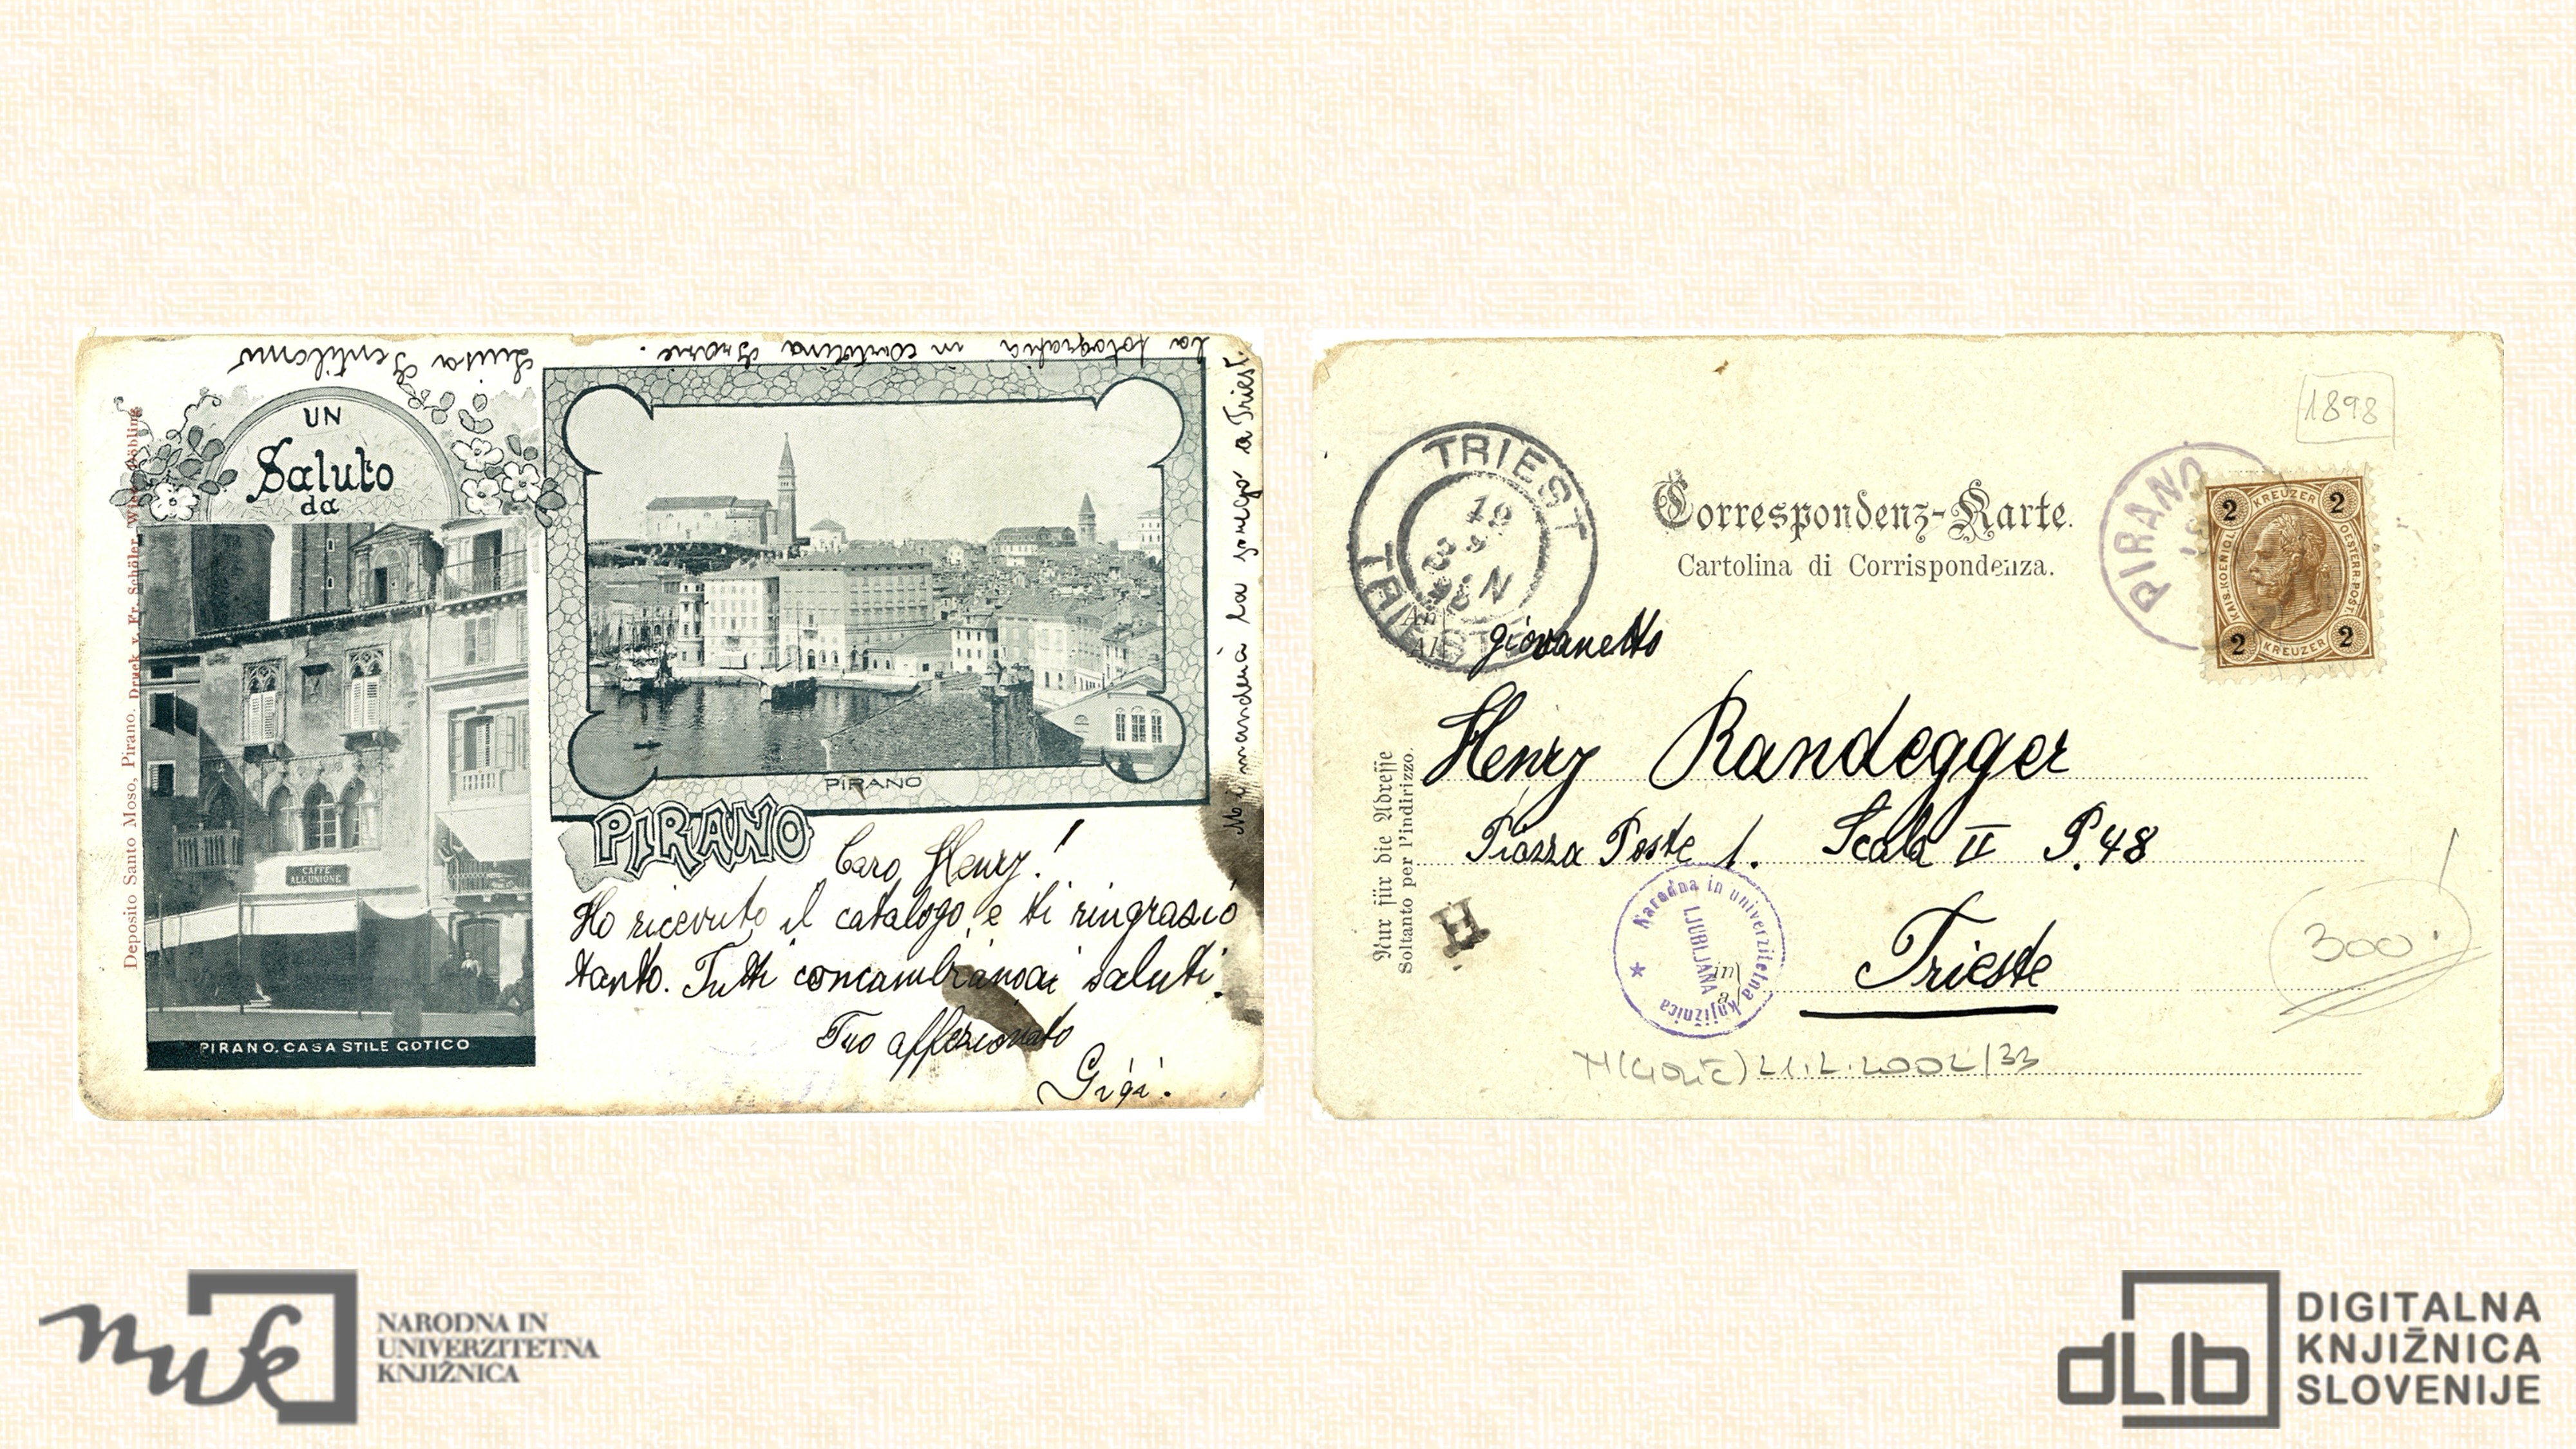 Luisa Gentilomo
la fotografia in cartolina
UN
Saluto
da
Deposito Santo Moso, Pirano. Druck v. Fr. Schöler, Wien, Döbling
CAFFÈ
ALL'UNIONE
PIRANO. CASA STILE GOTICO
PIRANO
PIRANO
la prego a Triest.
Caro Henry!
Ho ricevuto il catalogo, e ti ringrazio
tanto. Tutti saluti.
Tuo affezionato
Gigi.
TRIEST
19
3
98 N
TRIEST
Correspondenz-Karte.
Cartolina di Corrispondenza.
1898
PIRANO
2 KREUZER 2
KAIS. KOENIGL. OESTERR. POST.
2 KREUZER 2
giovanetto
Henry Randegger
Piazza Poste 1. Scala II P. 48
Trieste
Nur für die Adresse
Soltanto per l'indirizzo.
H
Narodna in univerzitetna knjižnica
LJUBLJANA
in
300.-
21.2.2002/33
nuk
NARODNA IN
UNIVERZITETNA
KNJIŽNICA
dLib
DIGITALNA
KNJIŽNICA
SLOVENIJE